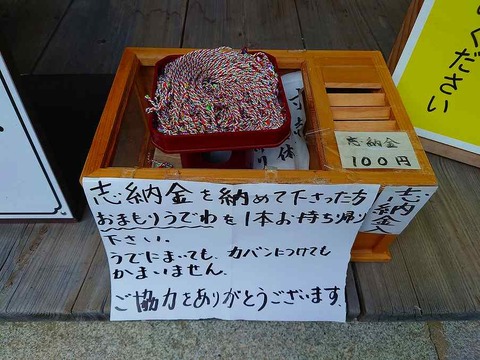 ください
志納金
100円
志納金を納めて下さった方
おまもりうでわを1本お持ち帰り
下さい。
うでにまいても、カバンにつけても
かまいません。
ご協力をありがとうございます。
志納金入